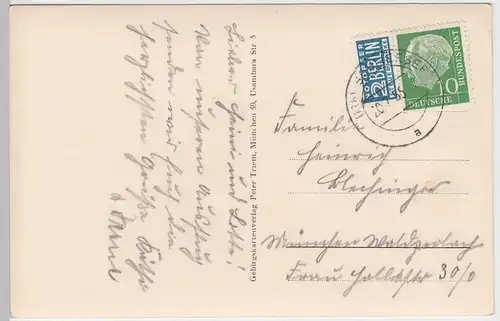 Lieber Heini und Lotte!
Von unserem Ausflug
senden wir Euch die
herzlichsten Grüße Käthe
Gebirgskartenverlag Peter Triem, München 59, Usambara Str 5
NOTOPFER
2 BERLIN
STEUERMARKE
DEUTSCHE
BUNDESPOST
10
a
Familie
Heinrich
Blechinger
München Waldperlach
Frau 30/0